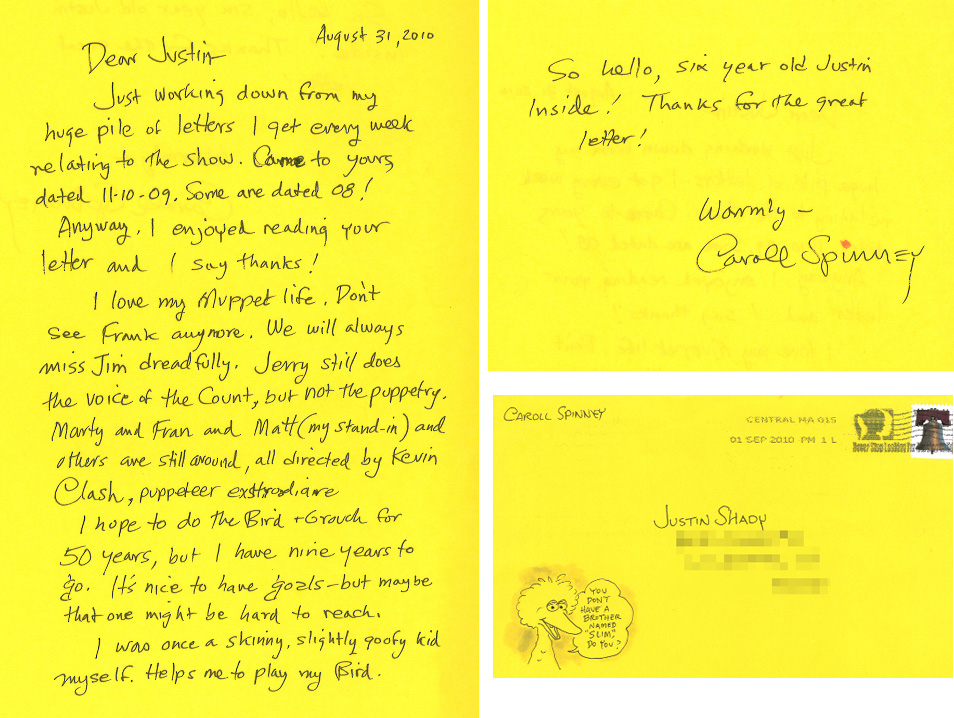 August 31, 2010
Dear Justin
Just working down from my
huge pile of letters I get every week
relating to the show. Came to yours,
dated 11-10-09. Some are dated 08!
Anyway, I enjoyed reading your
letter and I say thanks!
I love my Muppet life. Don't
see Frank anymore. We will always
miss Jim dreadfully. Jerry still does
the voice of the Count, but not the puppetry.
Marty and Fran and Matt (my stand-in) and
others are still around, all directed by Kevin
Clash, puppeteer
I hope to do the Bird + Grouch for
50 years, but I have nine years to
go. It's nice to have goals - but maybe
that one might be hard to reach.
I was once a skinny, slightly goofy kid
myself. Helps me to play my Bird.
So hello, six year old Justin
Inside! Thanks for the great
letter!
Warmly -
Caroll Spinney
CAROLL SPINNEY
CENTRAL MA 015
01 SEP 2010 PM 1 L
JUSTIN SHADY
YOU
DON'T
HAVE A
BROTHER
NAMED
"SLIM,"
DO YOU?